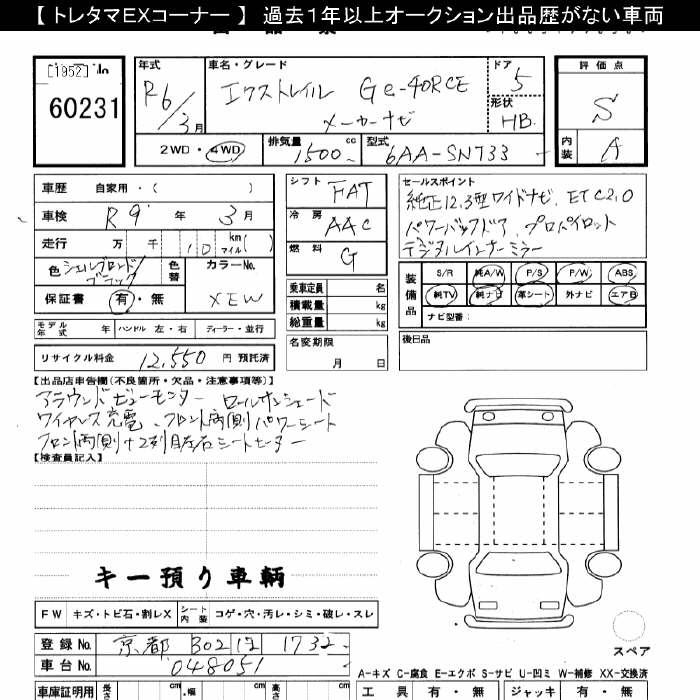 【 トレタマEXコーナー 】 過去1年以上オークション出品歴がない車両
[1952] No
60231
年式
R6/3月
車名・グレード
エクストレイル Ge-4ORCE
メーカーナビ
ドア
5
形状
HB
評価点
S
内装
A
2WD・4WD
排気量
1500 cc
型式
6AA-SNT33
車歴 自家用・( )
車検 R 9 年 3 月
走行 万 千 10 km マイル( )
色 シェルブロンド/ブラック
色替
カラーNo.
XEW
保証書 有・無
シフト FAT
冷房 AAC
燃料 G
乗車定員 名
積載量 kg
総重量 kg
セールスポイント
純正12.3型ワイドナビ、ETC2.0
パワーバックドア、プロパイロット
デジタルインナーミラー
装備品
S/R 純A/W P/S P/W ABS
純TV 純ナビ 革シート 外ナビ エアB
ナビ型番：
モデル年式 年 ハンドル 左・右 ディーラー・並行
リサイクル料金 12,550 円 預託済
名変期限
月 日
後日品
【出品店申告欄(不良箇所・欠品・注意事項等)】
アラウンドビューモニター ロールサンシェード
ワイヤレス充電、フロント両側パワーシート
フロント両側+2列目左右シートヒーター
【検査員記入】
キー預り車輌
FW キズ・トビ石・割レX シート内装 コゲ・穴・汚レ・シミ・破レ・スレ
登録No. 京都 302 は 1732
車台No. 048051
スペア
A-キズ C-腐食 E-エクボ S-サビ U-凹ミ W-補修 XX-交換済
車庫証明用 長さ cm ・幅 cm 高さ cm
工具 有・無 ジャッキ 有・無